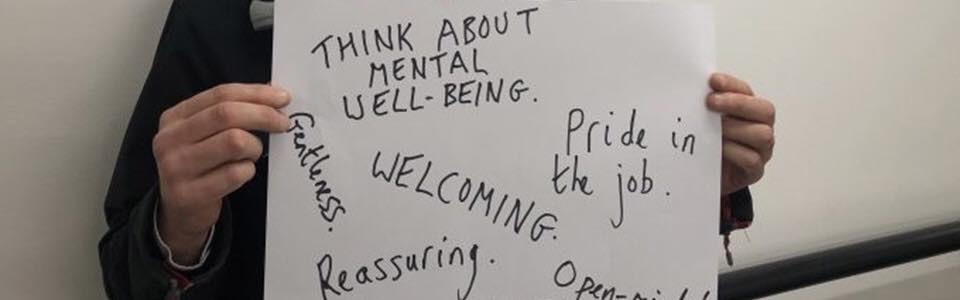 THINK ABOUT
MENTAL
WELL-BEING.
Gentleness.
WELCOMING.
Pride in
the job.
Reassuring.